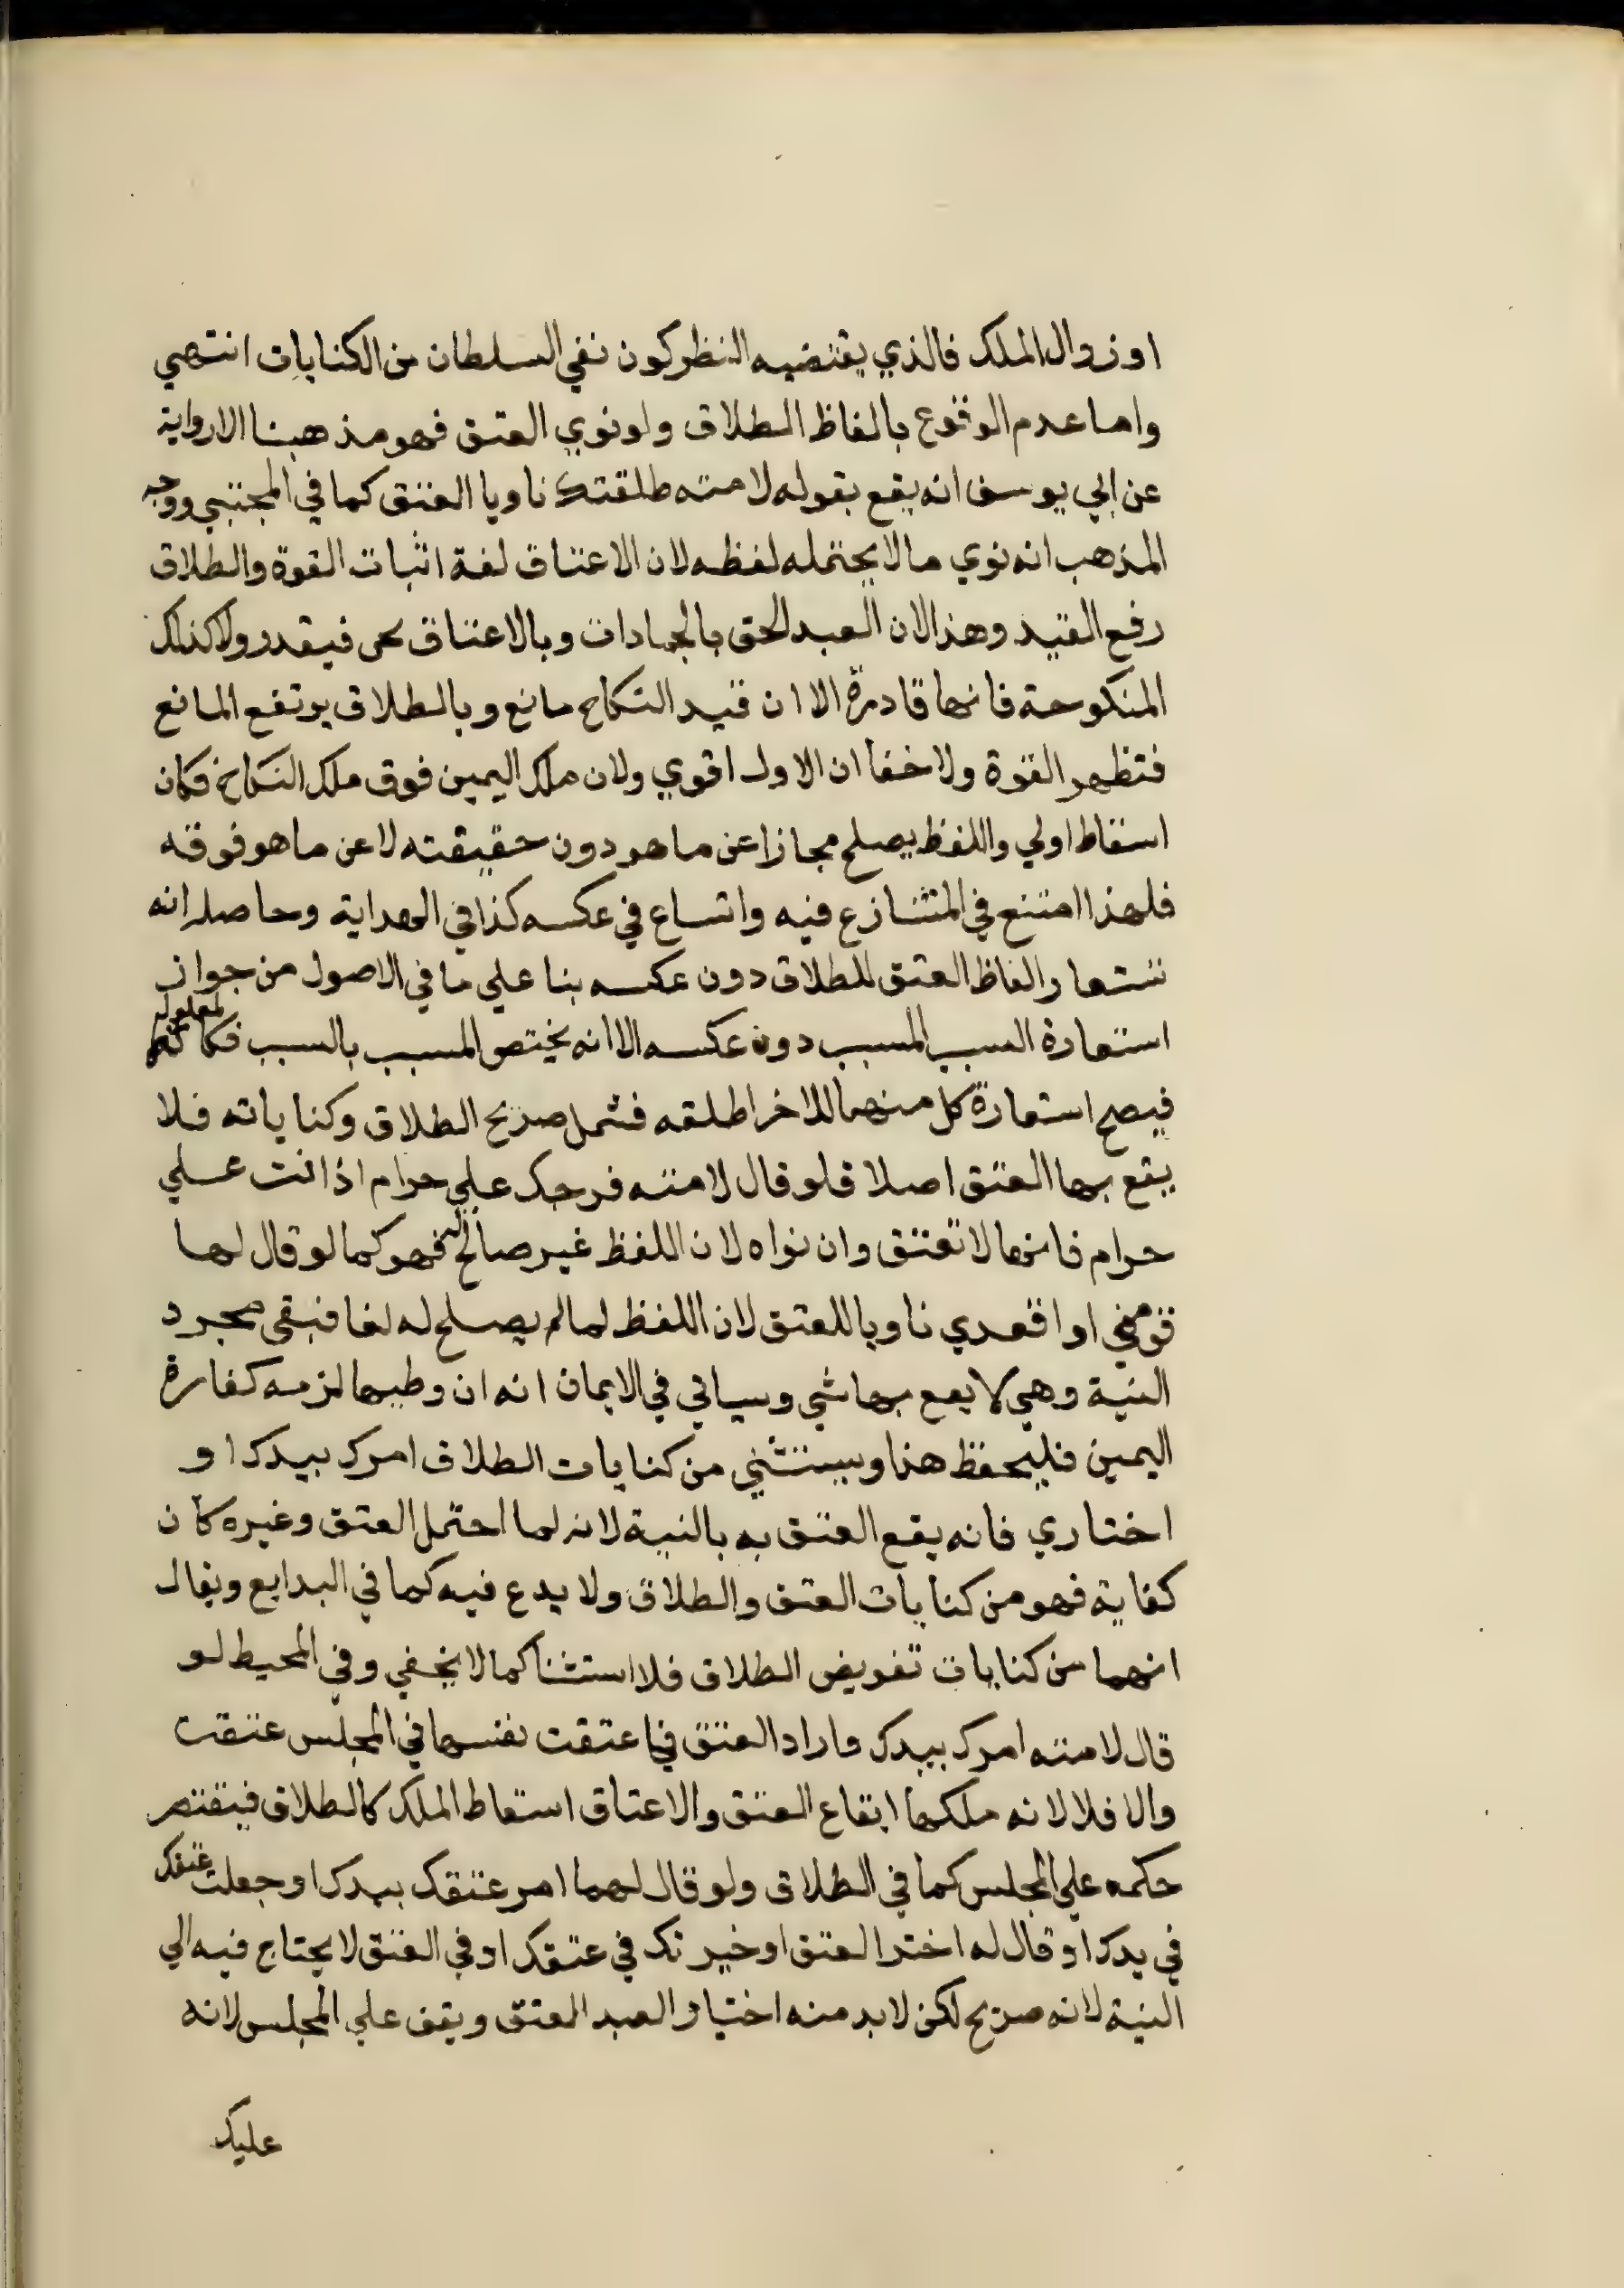 او زوال الملك فالذي يقتضيه النظر كون نفي السلطان من الكنايات انتهي
واما عدم الوقوع بالفاظ الطلاق ولو نوي العتق فهو مذهبنا الا رواية
عن ابي يوسف انه يقع بقوله لامته طلقتك ناويا العتق كما في المجتبي ووجه
المذهب انه نوي ما لا يحتمله لفظه لان الاعتاق لغة اثبات القوة والطلاق
رفع القيد وهذا لان العبد الحق بالجمادات وبالاعتاق يحي فيقدر ولا كذلك
المنكوحة فانها قادرة الا ان قيد النكاح مانع وبالطلاق يرتفع المانع
فتظهر القوة ولا خفا ان الاول اقوي ولان ملك اليمين فوق ملك النكاح فكان
اسقاط اولي واللفظ يصلح مجازا عن ما هو دون حقيقته لا عن ما هو فوقه
فلهذا امتنع في المتنازع فيه واتساع في عكسه كذا في الهداية وحاصله انه
تستعار الفاظ العتق للطلاق دون عكسه بنا علي ما في الاصول من جواز
استعارة السبب للمسبب دون عكسه الا انه يختص المسبب بالسبب فكا لمعلول
فيصح استعارة كل منهما للاخر اطلقه فشمل صريح الطلاق وكناياته فلا
يقع بها العتق اصلا فلو قال لامته فرجك علي حرام اذ انت علي
حرام فانها لا تعتق وان نواه لان اللفظ غير صالح له فهو كما لو قال لها
قومي او اقعدي ناويا للعتق لان اللفظ لما لم يصلح له لغا فبقي مجرد
النية وهي لا يقع بها شي وسياتي في الايمان انه ان وطيها لزمه كفارة
اليمين فليحفظ هذا ويستثني من كنايات الطلاق امرك بيدك او
اختاري فانه يقع العتق به بالنية لانه لما احتمل العتق وغيره كان
كفاية فهو من كنايات العتق والطلاق ولا يدع فيه كما في البدايع ويقال
انهما من كنايات تفويض الطلاق فلا استثنا كما لا يخفي وفي المحيط لو
قال لامته امرك بيدك واراد العتق فاعتقت نفسها في المجلس عتقت
والا فلا لانه ملكها ايقاع العتق والاعتاق اسقاط الملك كالطلاق فيقتصر
حكمه علي المجلس كما في الطلاق ولو قال لهما امر عتقك بيدك او جعلت عتقك
في يدك او قال له اختر العتق او خيرتك في عتقك او في العتق لا يحتاج فيه الي
النية لانه صريح لكن لا بد منه اختيار العبد العتق ويقف علي المجلس لانه
عليك